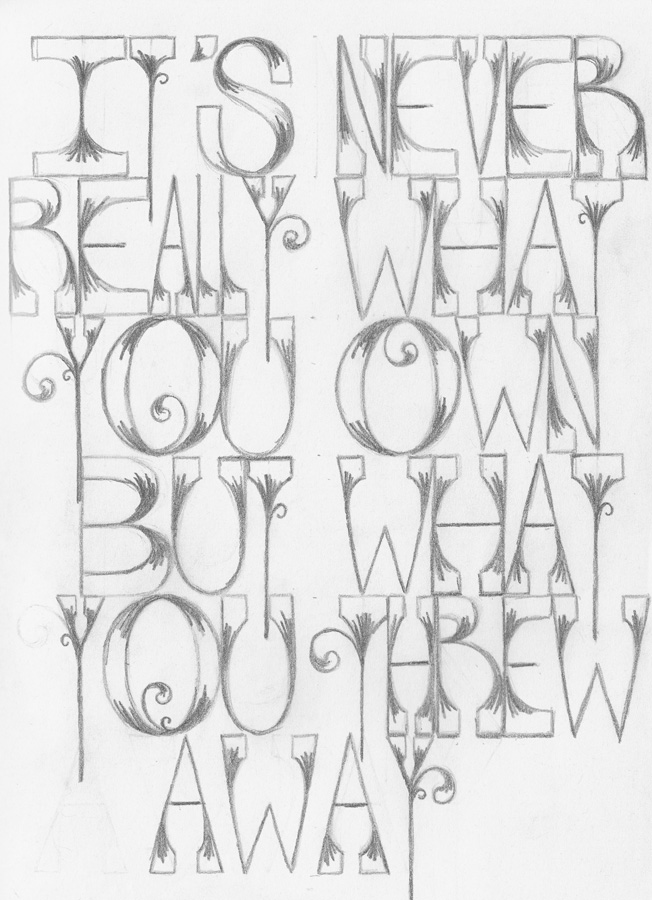 IT'S NEVER
REALLY WHAT
YOU OWN
BUT WHAT
YOU THREW
AWAY